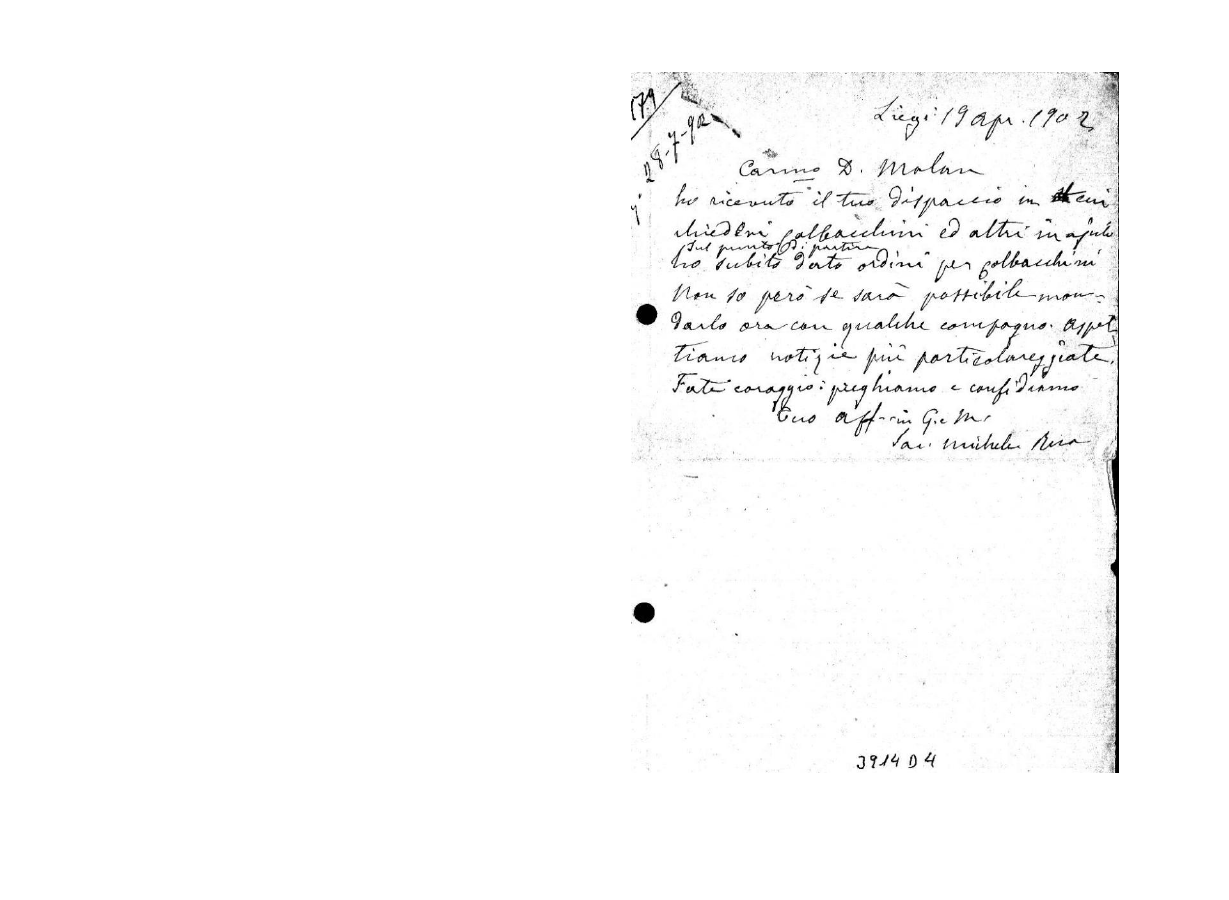 179
28-7-902
Liegi 19 apr. 1902
Carmo D. Malan
ho ricevuto il tuo dispaccio in cui
chiedevi Colbacchini ed altri in ajuto
sul punto di partire
ho subito dato ordini per Colbacchini
Non so però se sarà possibile man-
darlo ora con qualche compagno. Aspet
tiamo notizie più particolareggiate.
Fate coraggio: preghiamo e confidiamo
Tuo aff. in G. e M.
Sac. Michele Rua
3914 D 4